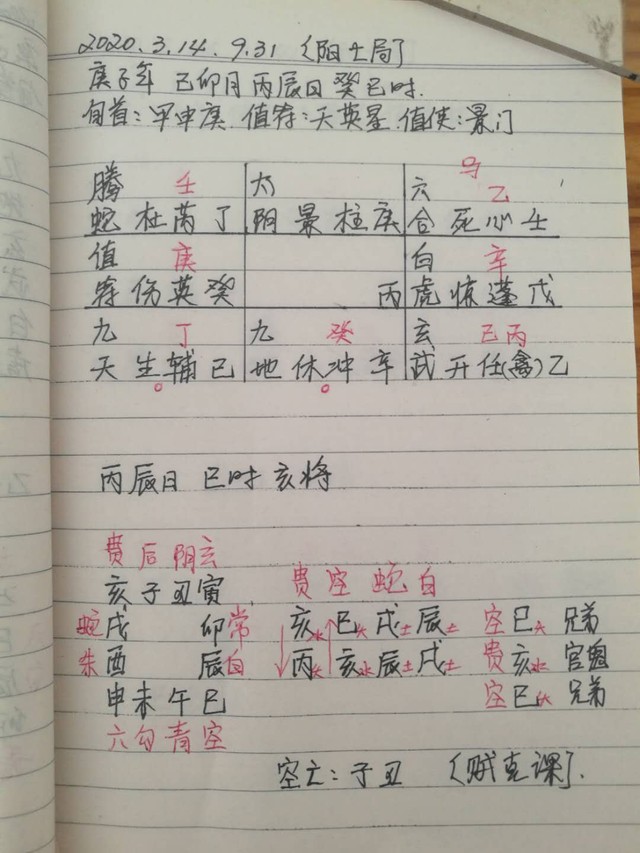 2020.3.14. 9.31 〈阳土局〉
庚子年 己卯月 丙辰日 癸巳时.
旬首:甲申庚 值符:天英星 值使:景门
马
腾 壬 太 六 乙
蛇 杜 芮 丁 阴 景 柱 庚 合 死 心 壬
值 庚 白 辛
符 伤 英 癸 丙 虎 惊 蓬 戊
九 丁 九 癸 玄 己 丙
天 生 辅 己 地 休 冲 辛 武 开 任(禽)乙
丙辰日 巳时 亥将
贵 后 阴 玄
亥 子 丑 寅 贵 空 蛇 白
蛇 戌 卯 常 亥水 巳火 戌土 辰土 空 巳火 兄弟
朱 酉 辰 白 丙火 亥水 辰土 戌土 贵 亥水 官鬼
申 未 午 巳 空 巳火 兄弟
六 勾 青 空
空亡:子丑 〈贼克课〉.